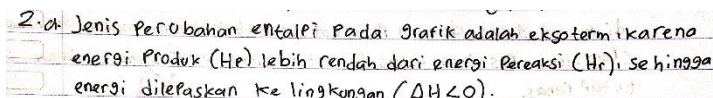 2.a. Jenis Perubahan entalpi Pada grafik adalah eksoterm, karena
energi Produk (He) lebih rendah dari energi Pereaksi (Hr), sehingga
energi dilepaskan ke lingkungan (ΔH<0).